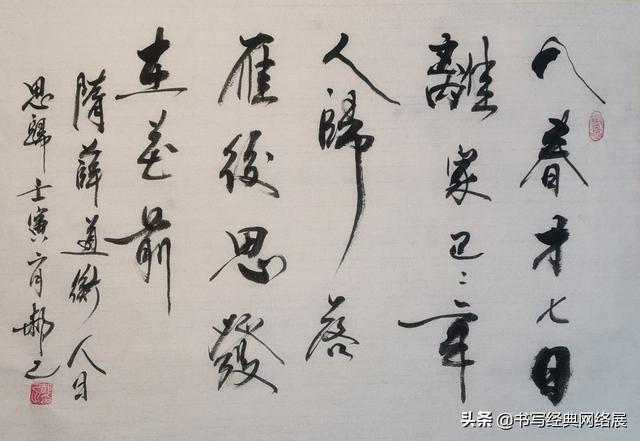 入春才七日
離家已二年
人歸落
雁後思發
在花前
隋薛道衡人日
思歸壬寅月
头条 @书写经典网络展